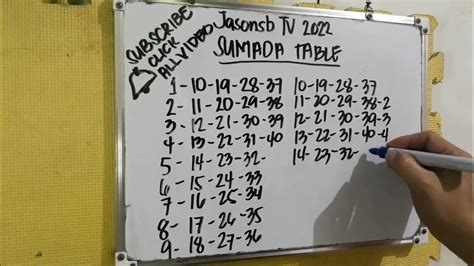 SUBSCRIBE
CLICK
ALL VIDEO
Jasonsb TV 2022
SUMADA TABLE
1-10-19-28-37
2-11-20-29-38
3-12-21-30-39
4-13-22-31-40
5-14-23-32-
6-15-24-33
7-16-25-34
8-17-26-35
9-18-27-36
10-19-28-37
11-20-29-38-2
12-21-30-39-3
13-22-31-40-4
14-23-32-